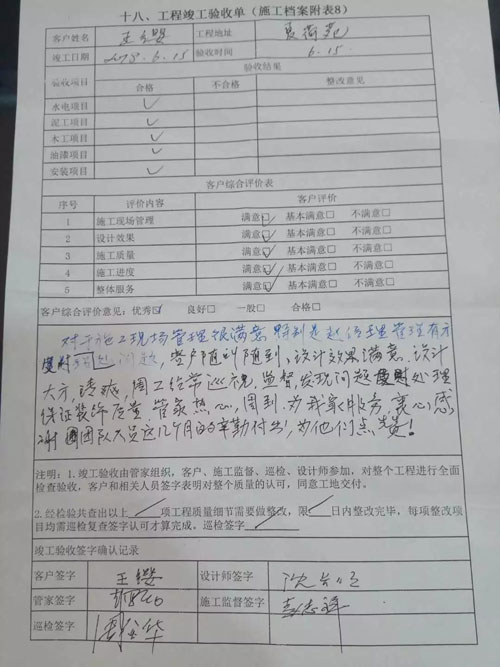 十八、工程竣工验收单（施工档案附表8）
客户姓名 工程地址
竣工日期 2018.6.15 验收时间 6.15
验收项目 验收结果
合格 不合格 整改意见
水电项目 ✓
泥工项目 ✓
木工项目 ✓
油漆项目 ✓
安装项目 ✓
客户综合评价表
序号 评价内容 客户评价
1 施工现场管理 满意☑ 基本满意□ 不满意□
2 设计效果 满意☑ 基本满意□ 不满意□
3 施工质量 满意☑ 基本满意□ 不满意□
4 施工进度 满意☑ 基本满意□ 不满意□
5 整体服务 满意☑ 基本满意□ 不满意□
客户综合评价意见：优秀☑ 良好□ 一般□ 合格□
对于施工现场管理很满意 特别是赵经理管理有方
问题，客户随叫随到、设计效果满意、设计
大方，清爽，周工经常巡视，监督，发现问题及时处理
保证装饰质量，管家热心，周到，为我家服务，衷心感
谢团队人员这几个月的辛勤付出！为他们点赞！
注明：1.竣工验收由管家组织，客户、施工监督、巡检、设计师参加，对整个工程进行全面
检查验收，客户和相关人员签字表明对整个质量的认可，同意工地交付。
2.经检验共查出以上 项工程质量细节需要做整改，限 日内整改完毕，每项整改项
目均需巡检复查签字认可才算完成，巡检签字
竣工验收签字确认记录
客户签字 设计师签字
管家签字 施工监督签字
巡检签字